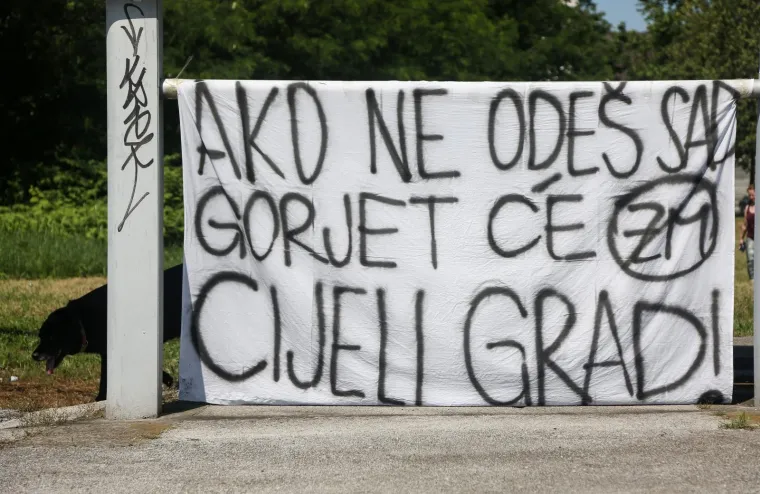 AKO NE ODEŠ SAD
GORJET ĆE ZM
CIJELI GRAD!